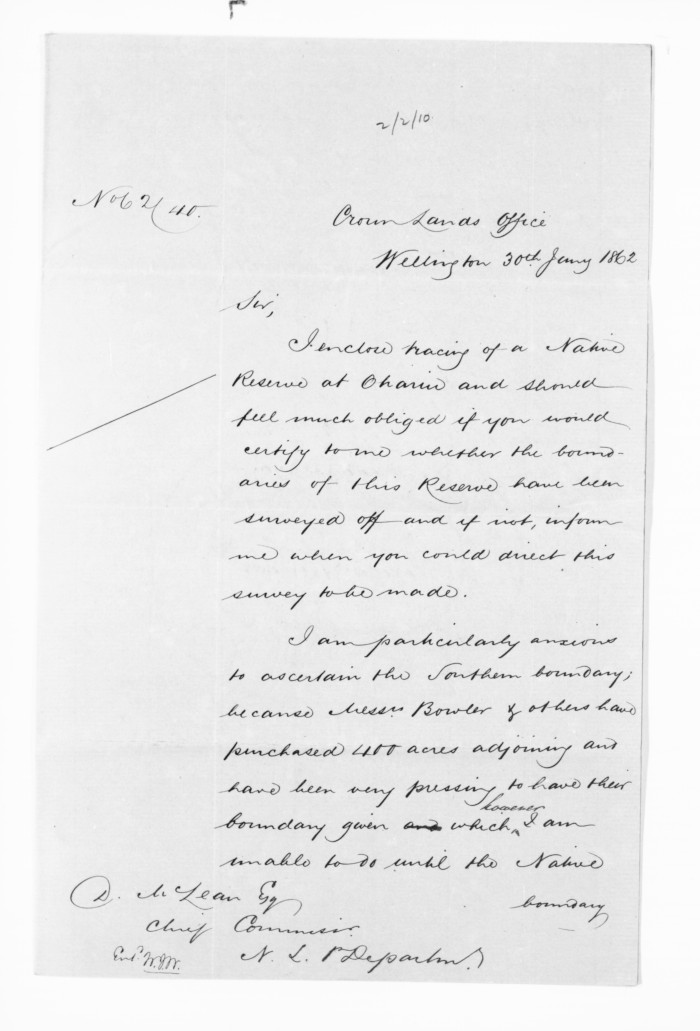 2/2/10
No 62/40.
Crown Lands Office
Wellington 30th Jany 1862
Sir,
I enclose tracing of a Native
Reserve at Ohariu and should
feel much obliged if you would
certify to me whether the bound-
aries of this Reserve have been
surveyed off and if not, inform
me when you could direct this
survey to be made.
I am particularly anxious
to ascertain the Southern boundary;
because Messrs Bowler & others have
purchased 400 acres adjoining and
have been very pressing to have their
however
boundary given and which, I am
unable to do until the Native
boundary
D. McLean Esq
Chief Commissr.
N. L. P Departmt.
Entd.